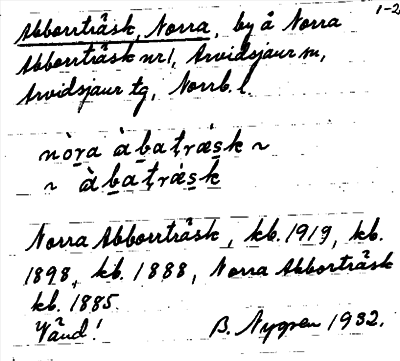 1-2
Abborrträsk, Norra, by å Norra
Abborrträsk nr 1, Arvidsjaur sn,
Arvidsjaur tg, Norrb. l.
nòra àbatrǽsk ~
~ àbatrǽsk
Norra Abborrträsk, kb. 1919, kb.
1898, kb. 1888, Norra Abborträsk
kb. 1885.
Vänd! B. Nygren 1932.